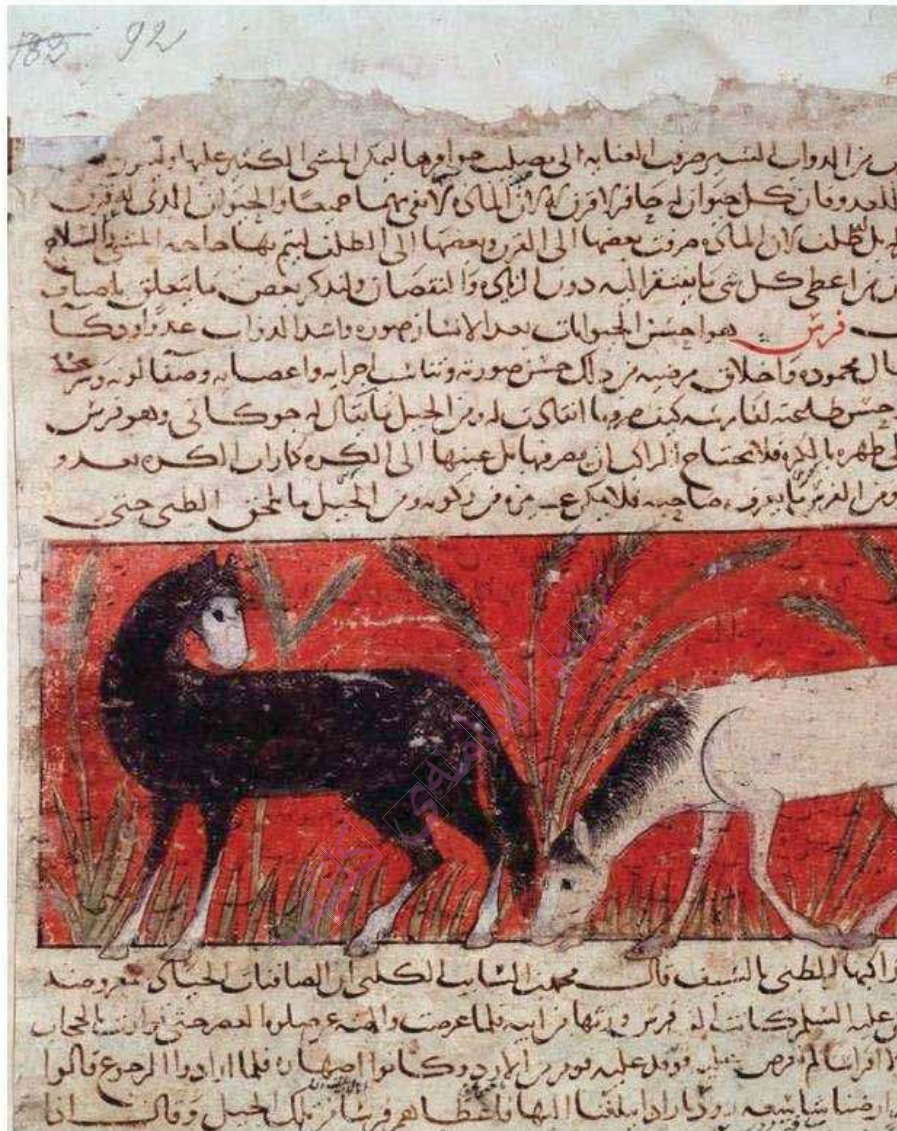 183 92
من الدواب السير صرفت العناية الى تصليب حوافرها ليمكن المشى الكثير عليها وليس
للعدو فان كل حيوان له حافر لا قرن له لان المادة لا تفى بهما جميعا والحيوان الذى له قرن
له بل ظلف لان المادة صرفت بعضها الى القرن وبعضها الى الظلف ليتم بها حاجة المشى والسلاح
من اعطى كل شى ما يفتقر اليه دون الزيادة والنقصان ولنذكر بعض ما يتعلق باصناف
فرس هو احسن الحيوانات بعد الانسان صورة واشد الدواب عدوا وذكا
خصال محمودة واخلاق مرضية من ذلك حسن صورته وتناسب اجزايه واعضايه وصفا لونه وسرعة
وحسن طاعته لفارسه كيف صرفها انقادت له ومن الخيل ما يقال له جوكانى وهو فرس
ظهره بالكرة فلا يحتاج الراكب ان يصرفها بل عينها الى الكرة كلما راى الكرة يعدو
ومن الفرس ما يعرف صاحبه فلا يمكن غيره من ركوبه ومن الخيل ما يلحق الظبى حتى
راكبها الظبى بالسيف قال محمد بن السايب الكلبى ان الصافنات الجياد المعروضة
على عليه السلم كانت الف فرس ورثها من ابيه فلما عرضت والهته عن صلوة العصر حتى توارت بالحجاب
الا افراسا لم تعرض عليه فوفد عليه قوم من الازد وكانوا اصهاره فلما ارادوا الرجوع قالوا
ارضنا شاسعة زادا يبلغنا اليها فاعطاهم فرسا من تلك الخيل وقال اذا